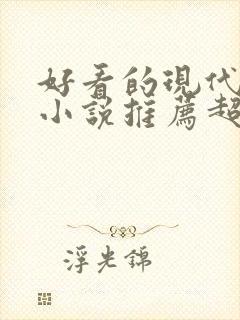 好看的现代
小说推薦超
浮光錦